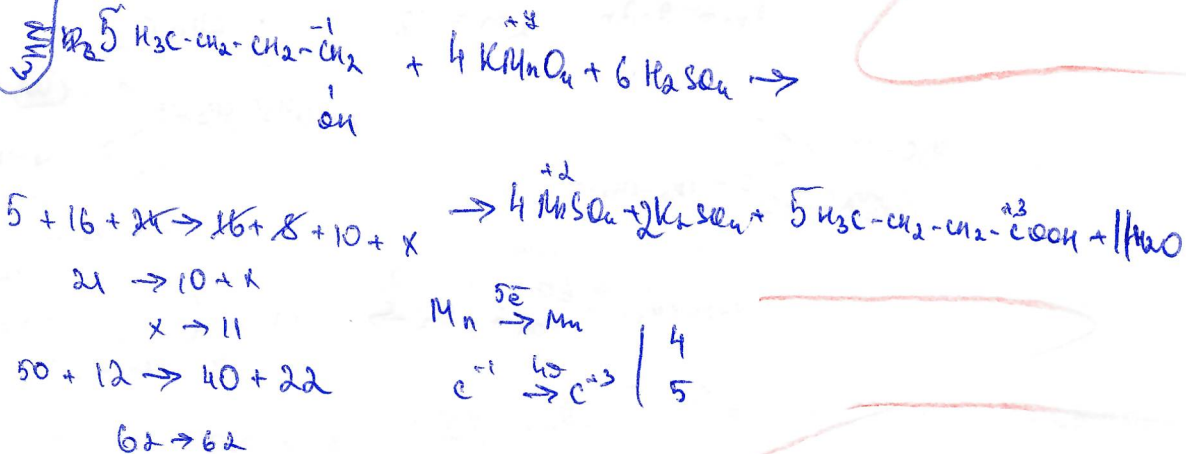 5 H₃C-CH₂-CH₂-CH₂ + 4 KMnO₄ + 6 H₂SO₄ →
-1 +7
OH
+2 +3
→ 4 MnSO₄ + 2K₂SO₄ + 5 H₃C-CH₂-CH₂-COOH + 11H₂O
5 + 16 + 24 → 16 + 8 + 10 + x
21 → 10 + x
x → 11
50 + 12 → 40 + 22
62 → 62
Mn 5e̅ → Mn | 4
C⁻¹ 4e̅ → C⁺³ | 5